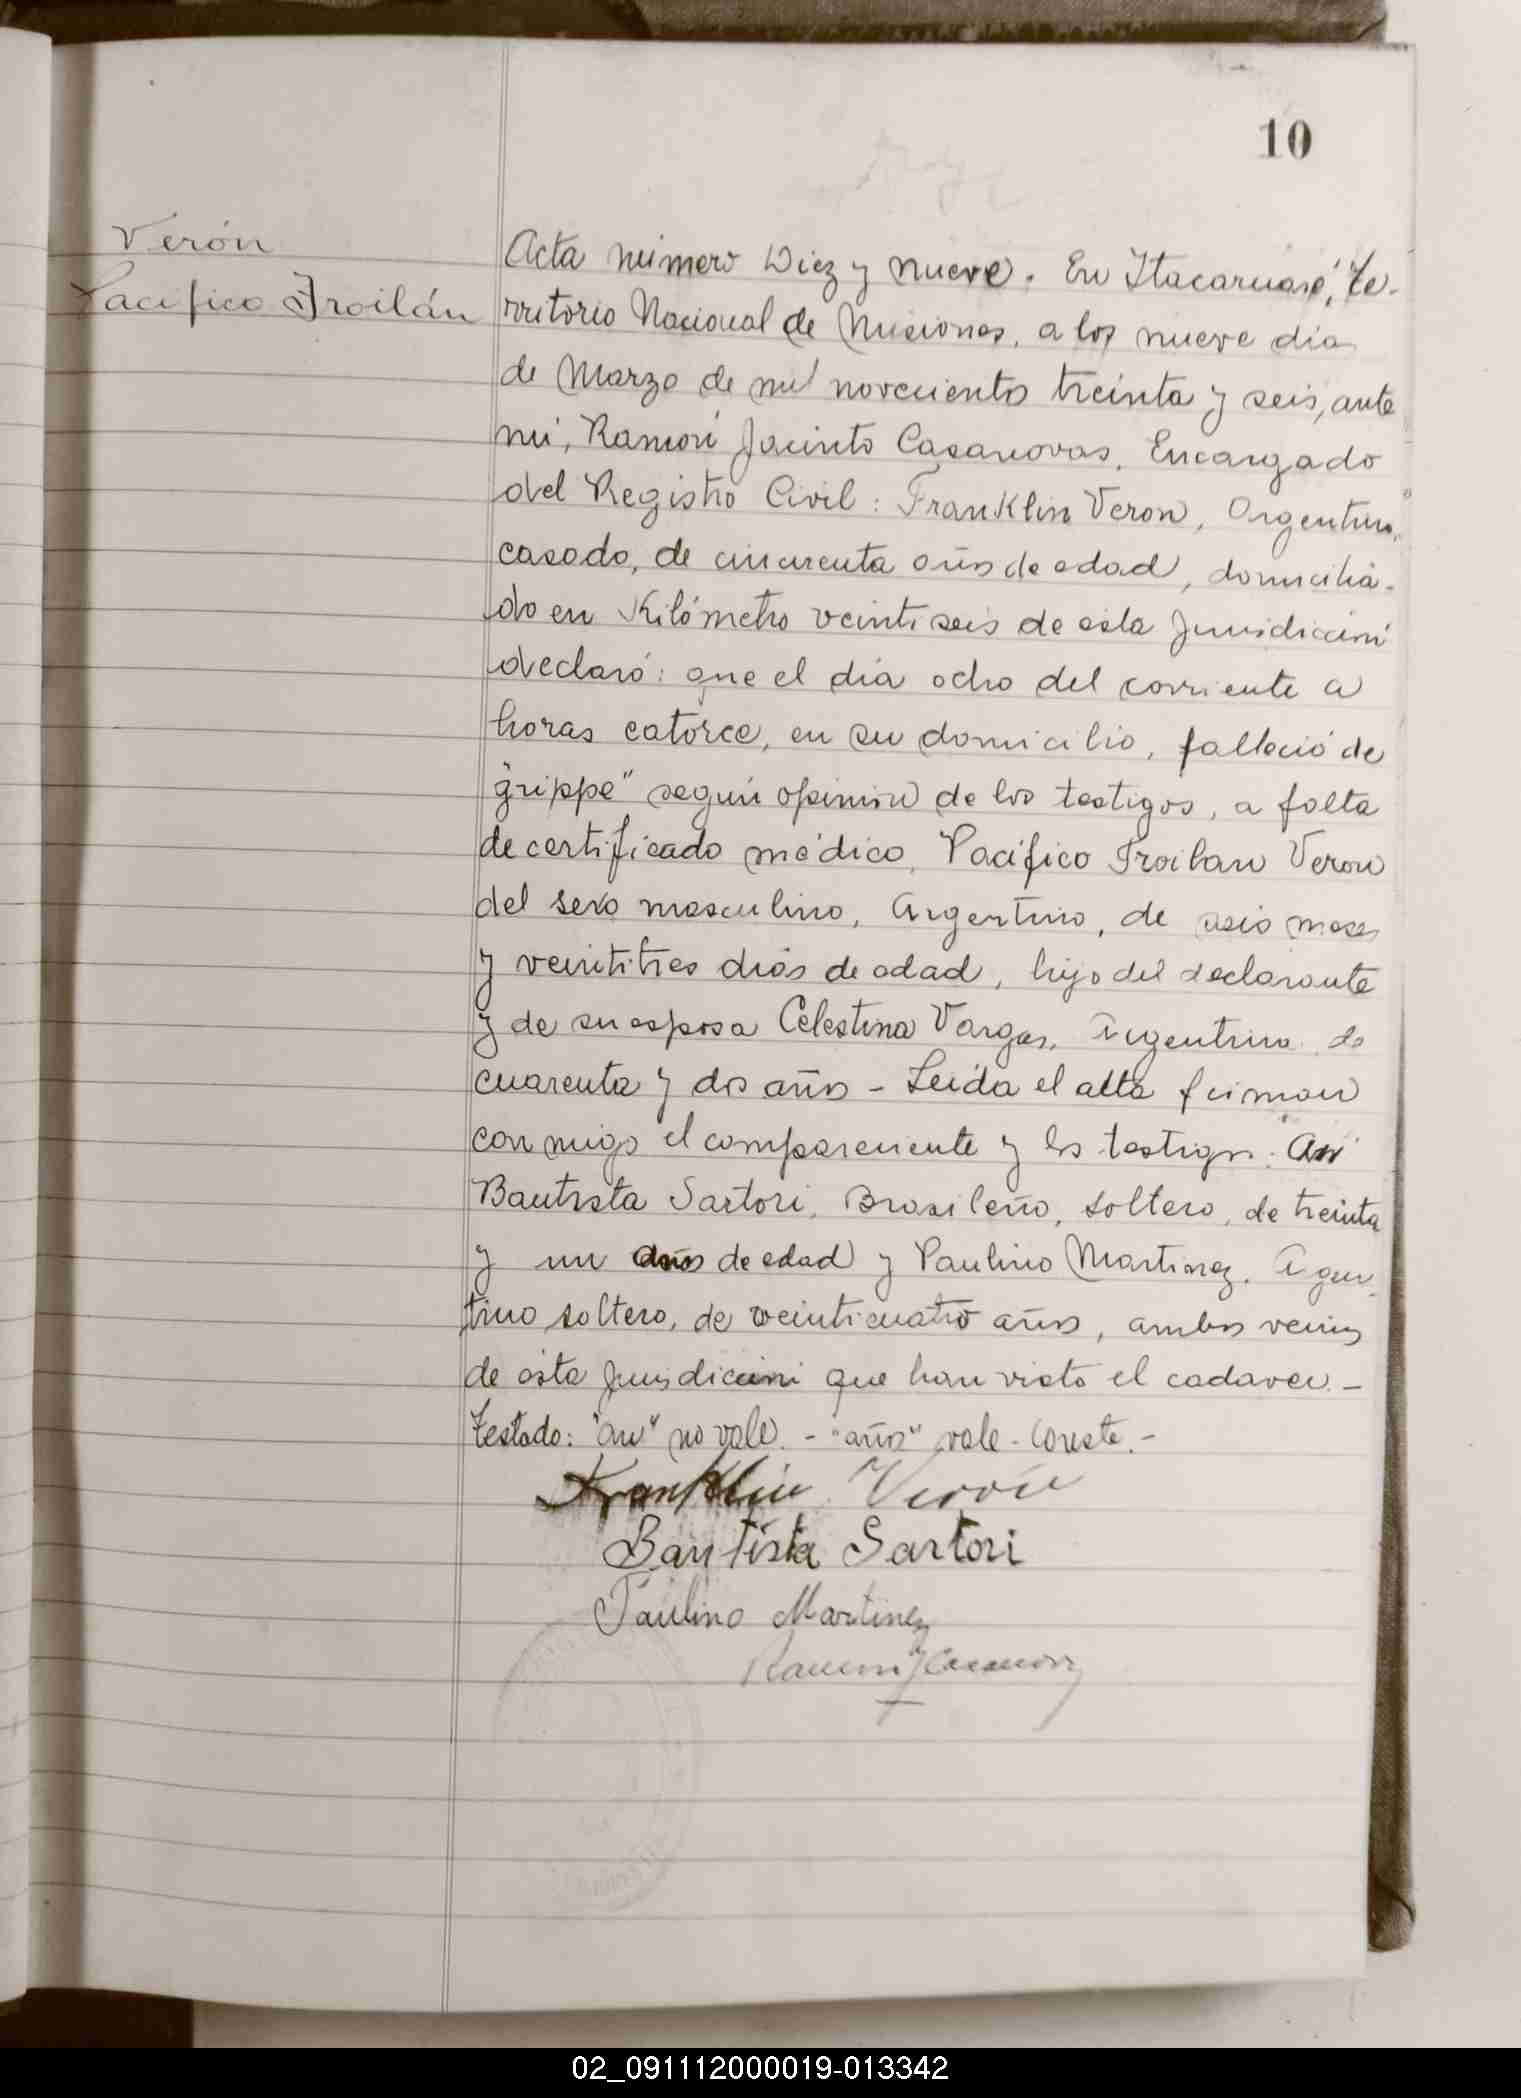 10
Verón
Pacifico Froilán
Acta número Diez y nueve. En Itacaruaré, Te-
rritorio Nacional de Misiones, a los nueve dias
de Marzo de mil novecientos treinta y seis, ante
mi, Ramón Jacinto Casanovas, Encargado
del Registro Civil: Franklin Veron, Argentino,
casado, de cincuenta años de edad, domicilia-
do en Kilómetro veintiseis de esta Jurisdicción
declaró: que el dia ocho del corriente a
horas catorce, en su domicilio, falleció de
"grippe" según opinión de los testigos, a falta
de certificado médico, Pacifico Froilan Veron
del sexo masculino, Argentino, de seis meses
y veintitres dias de edad, hijo del declarante
y de su esposa Celestina Vargas, Argentina de
cuarenta y dos años - Leida el acta firman
conmigo el compareciente y los testigos: An
Bautista Sartori, Brasileño, soltero, de treinta
y un años de edad y Paulino Martinez, Argen-
tino soltero, de veinticuatro años, ambos vecinos
de esta Jurisdicción que han visto el cadaver. -
Testado: "An" no vale. - "años" vale. Conste. -
Franklin Verón
Bautista Sartori
Paulino Martinez
Ramon J Casanovas
02_091112000019-013342